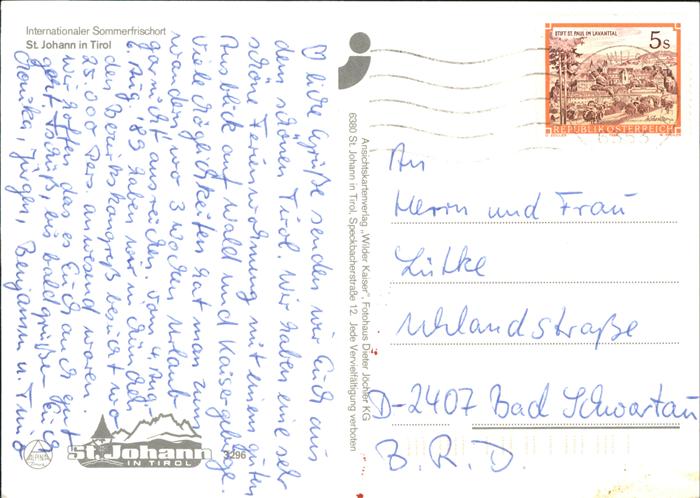 Internationaler Sommerfrischort
St. Johann in Tirol
liebe Grüße senden wir Euch aus
dem schönen Tirol. Wir haben eine sehr
schöne Ferienwohnung mit einem guten
Ausblick auf Wald und Kaisergebirge.
Viele Möglichkeiten hat man zum
wandern, wo 3 Wochen Urlaub
garnicht ausreichen. Vom 4. Aug-
6. Aug. '89 haben wir in München
den Bezirkskongreß besucht wo
25.000 Pers. anwesend waren.
Wir hoffen das es Euch auch gut
geht. Tschüß, bis bald grüßen Euch
Monika, Jürgen, Benjamin u. Timo
ALPINA
St. Johann
IN TIROL
3296
Ansichtskartenverlag „Wilder Kaiser“, Fotohaus Dieter Jöchler KG
6380 St. Johann in Tirol, Speckbacherstraße 12. Jede Vervielfältigung verboten
STIFT ST. PAUL IM LAVANTTAL
5 s
REPUBLIK ÖSTERREICH
An
Herrn und Frau
Lütke
Uhlandstraße
D-2407 Bad Schwartau
B. R. D.